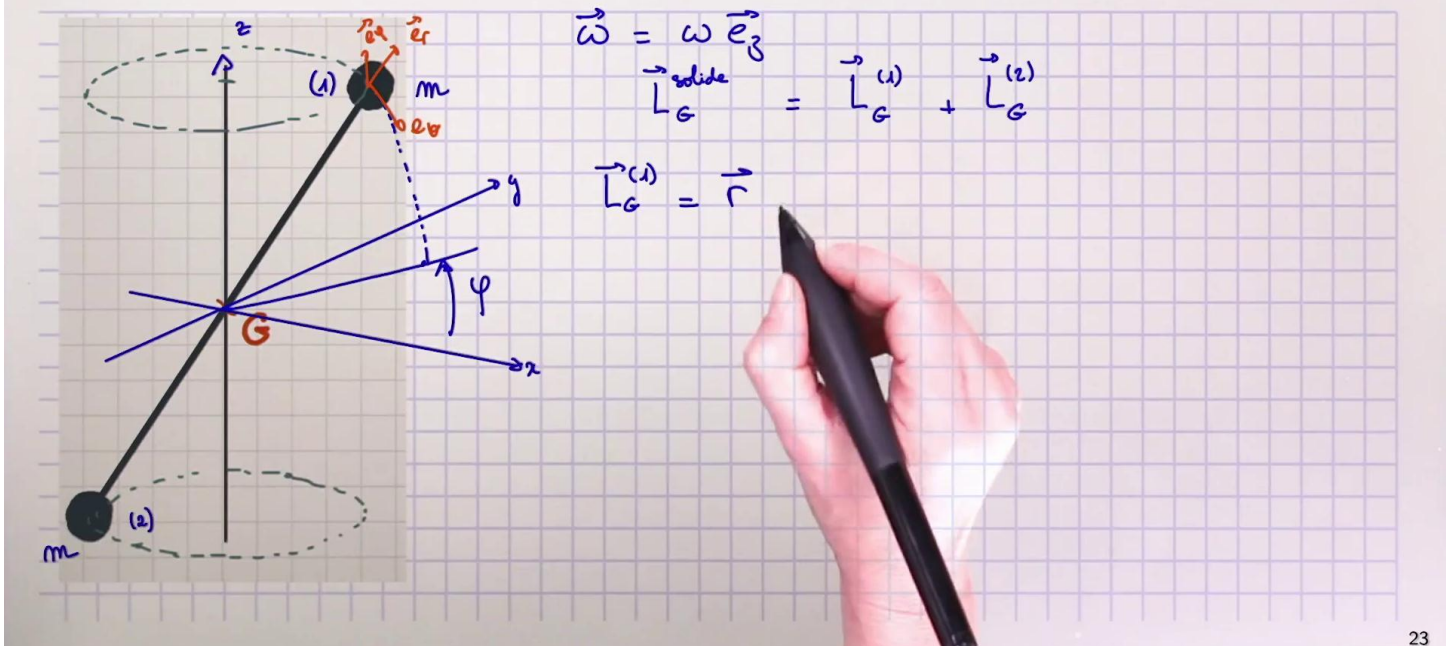 z
e⃗φ e⃗r
(1) m
eθ
y
φ
G
x
(2)
m
ω⃗ = ω e⃗z
L⃗G^solide = L⃗G^(1) + L⃗G^(2)
L⃗G^(1) = r⃗
23